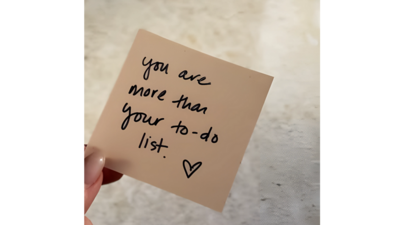 you are
more than
your to-do
list.